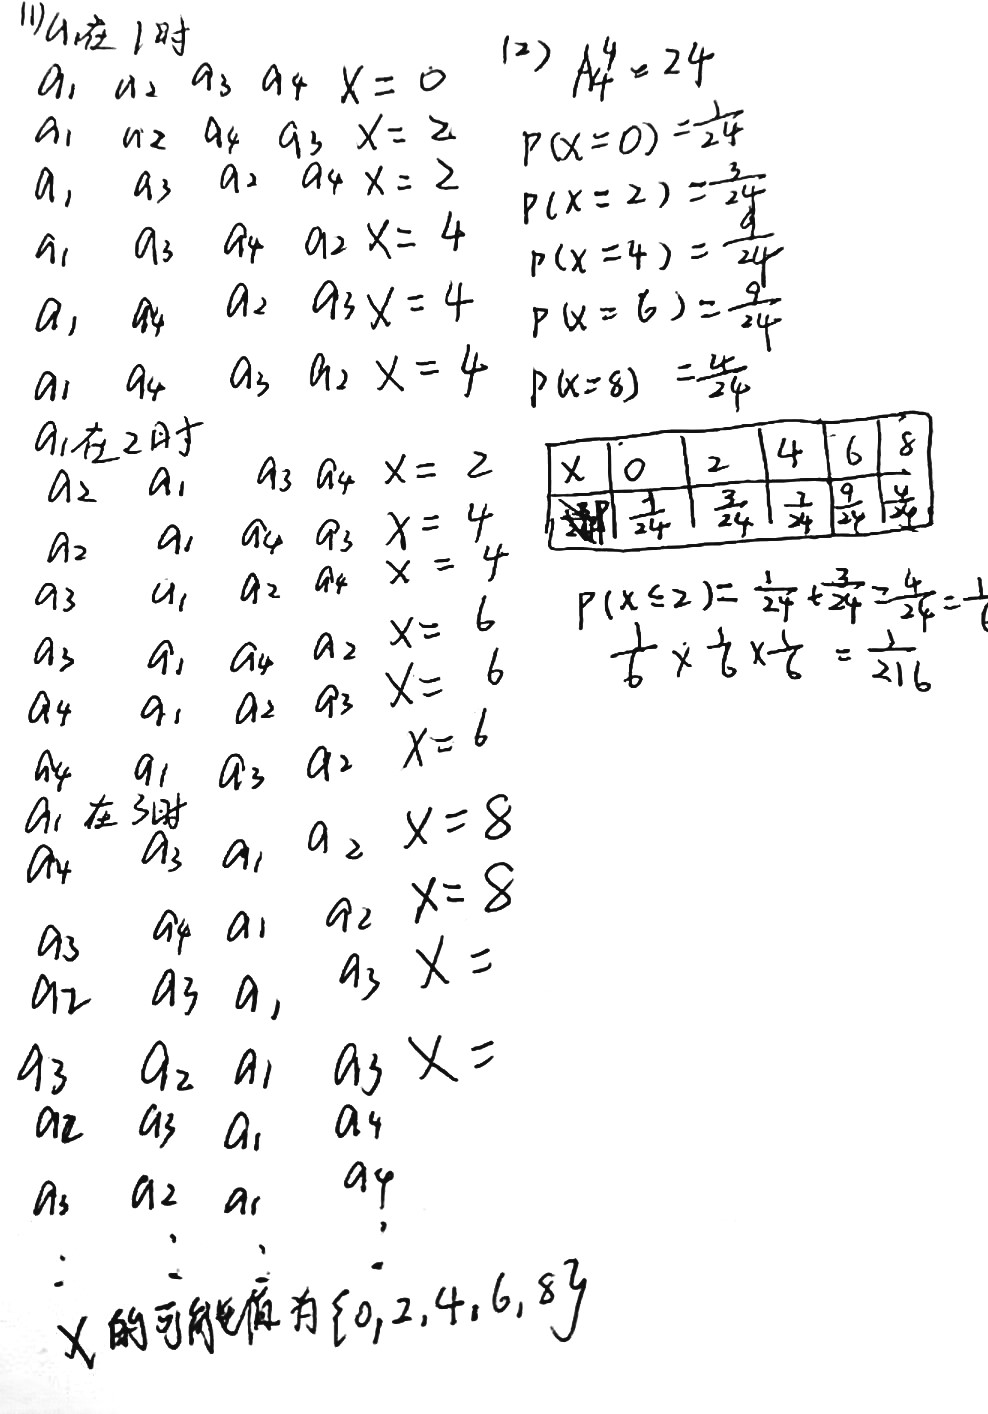 (1) a₁在1时
a₁ a₂ a₃ a₄ X = 0
a₁ a₂ a₄ a₃ X = 2
a₁ a₃ a₂ a₄ X = 2
a₁ a₃ a₄ a₂ X = 4
a₁ a₄ a₂ a₃ X = 4
a₁ a₄ a₃ a₂ X = 4
a₁在2时
a₂ a₁ a₃ a₄ X = 2
a₂ a₁ a₄ a₃ X = 4
a₃ a₁ a₂ a₄ X = 4
a₃ a₁ a₄ a₂ X = 6
a₄ a₁ a₂ a₃ X = 6
a₄ a₁ a₃ a₂ X = 6
a₁在3时
a₄ a₃ a₁ a₂ X = 8
a₃ a₄ a₁ a₂ X = 8
a₂ a₃ a₁ a₃ X =
a₃ a₂ a₁ a₃ X =
a₂ a₃ a₁ a₄
a₃ a₂ a₁ a₄
⋮ ⋮ ⋮ ⋮
X的可能值为{0,2,4,6,8}
(2) A₄⁴ = 24
P(X=0) = 1/24
P(X=2) = 3/24
P(X=4) = 9/24
P(X=6) = 9/24
P(X=8) = 4/24
X 0 2 4 6 8
P 1/24 3/24 7/24 9/24 4/24
P(X≤2) = 1/24 + 3/24 = 4/24 = 1/6
1/6 × 1/6 × 1/6 = 1/216